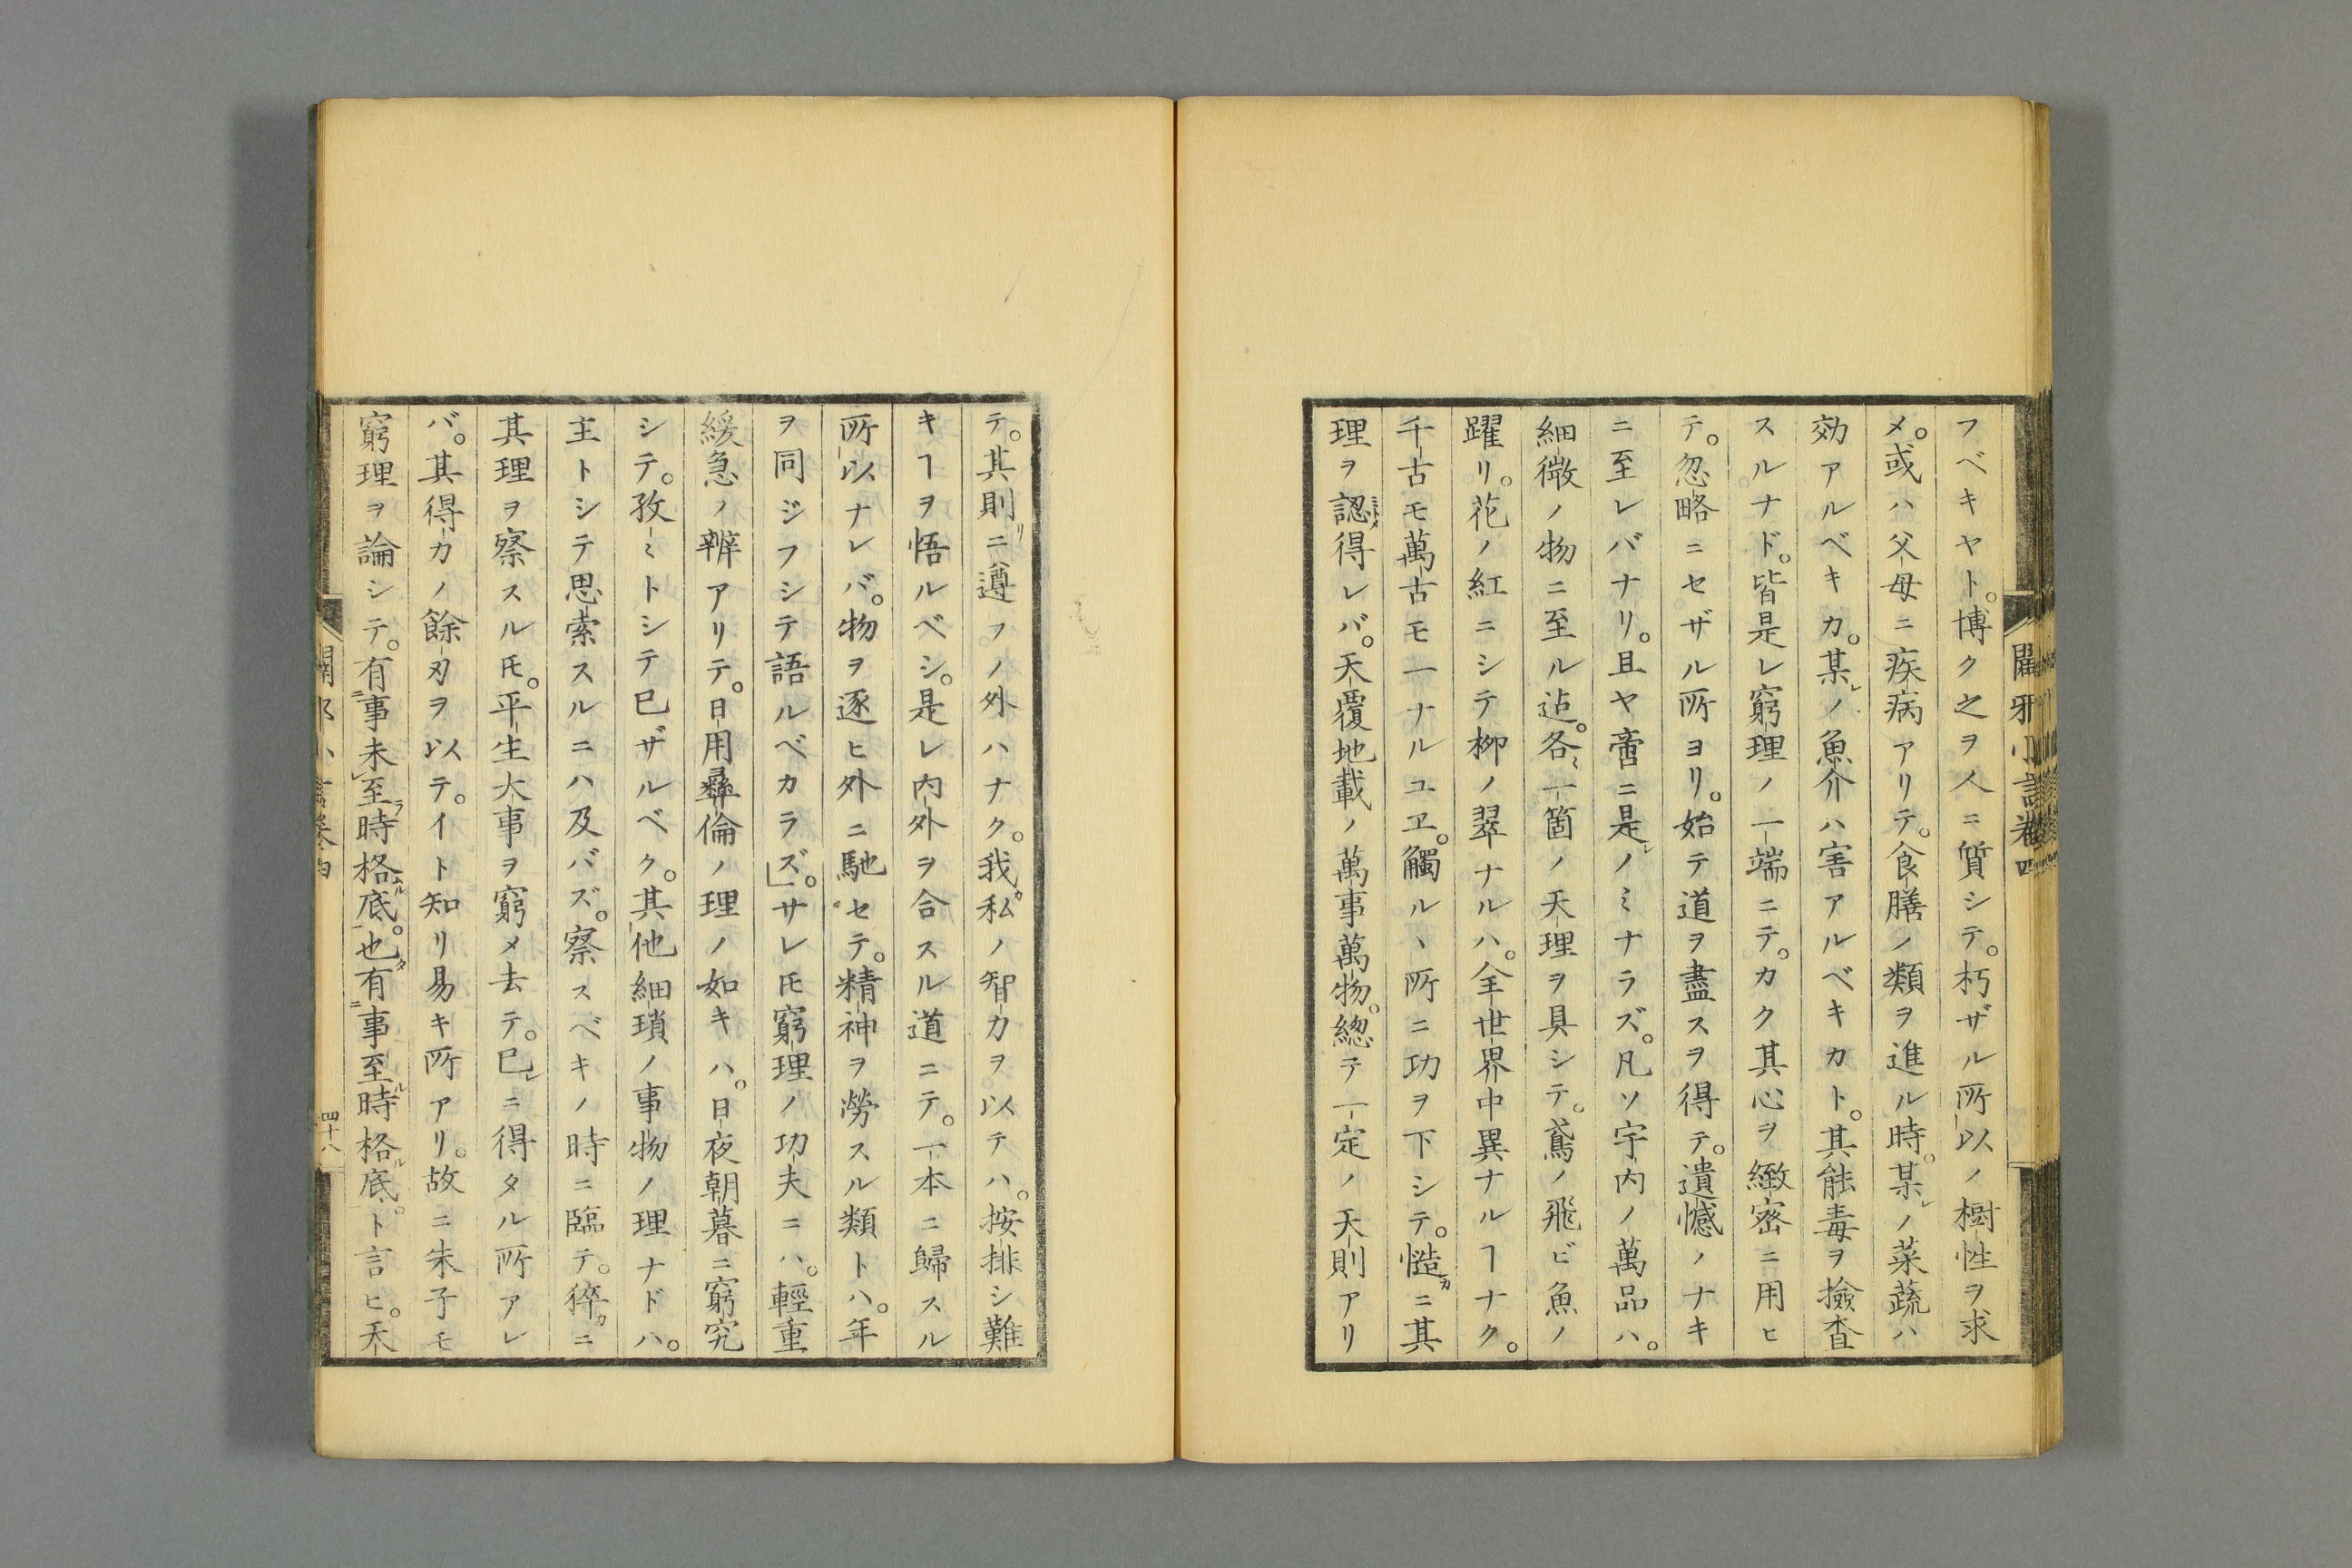 闢邪小言卷四
フベキヤト。博ク之ヲ人ニ質シテ。朽ザル所以ノ樹性ヲ求
メ。或ハ父母ニ疾病アリテ。食膳ノ類ヲ進ル時。某レノ菜蔬ハ
効アルベキカ。某レノ魚介ハ害アルベキカト。其能毒ヲ撿査
スルナド。皆是レ窮理ノ一端ニテ。カク其心ヲ緻密ニ用ヒ
テ。忽略ニセザル所ヨリ。始テ道ヲ盡スヲ得テ。遺憾ノナキ
ニ至レバナリ。且ヤ啻ニ是レノミナラズ。凡ソ宇内ノ萬品ハ。
細微ノ物ニ至ル迠。各〻一箇ノ天理ヲ具シテ。鳶ノ飛ビ魚ノ
躍リ。花ノ紅ニシテ柳ノ翠ナルハ。全世界中異ナルヿナク。
千古モ萬古モ一ナルユヱ。觸ルヽ所ニ功ヲ下シテ。慥カニ其
理ヲ認ミトメ得レバ。天覆地載ノ萬事萬物。總テ一定ノ天則アリ
テ。其則リニ遵フノ外ハナク。我私ノ智力ヲ以テハ。按排シ難
キヿヲ悟ルベシ。是レ内外ヲ合スル道ニテ。一本ニ歸スル
所以ナレバ。物ヲ逐ヒ外ニ馳セテ。精神ヲ勞スル類トハ。年
ヲ同ジフシテ語ルベカラズ」。サレ𪜈窮理ノ功夫ニハ。輕重
緩急ノ辨アリテ。日用彜倫ノ理ノ如キハ。日夜朝暮ニ窮究
シテ。孜〻トシテ已ザルベク。其他細瑣ノ事物ノ理ナドハ。
主トシテ思索スルニハ及バズ。察スベキノ時ニ臨テ。猝カニ
其理ヲ察スル𪜈。平生大事ヲ窮メ去テ。已レニ得タル所アレ
バ。其得力ノ餘刃ヲ以テ。イト知リ易キ所アリ。故ニ朱子モ
窮理ヲ論シテ。有ニ事未レ至ラ時格ムル底。也タ有ニ事至ル時格ル底。ト言ヒ。天
四十八